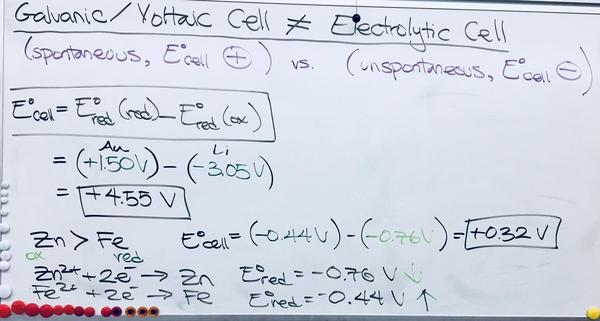 Galvanic/Voltaic Cell ≠ Electrolytic Cell
(spontaneous, E°cell ⊕) vs. (unspontaneous, E°cell ⊖)
E°cell = E°red (red) – E°red (ox)
Au Li
= (+1.50V) – (–3.05V)
= +4.55 V
Zn > Fe E°cell = (–0.44V) – (–0.76V) = +0.32 V
ox red
Zn²⁺ + 2e⁻ → Zn E°red = –0.76 V ↓
Fe²⁺ + 2e⁻ → Fe E°red = –0.44 V ↑